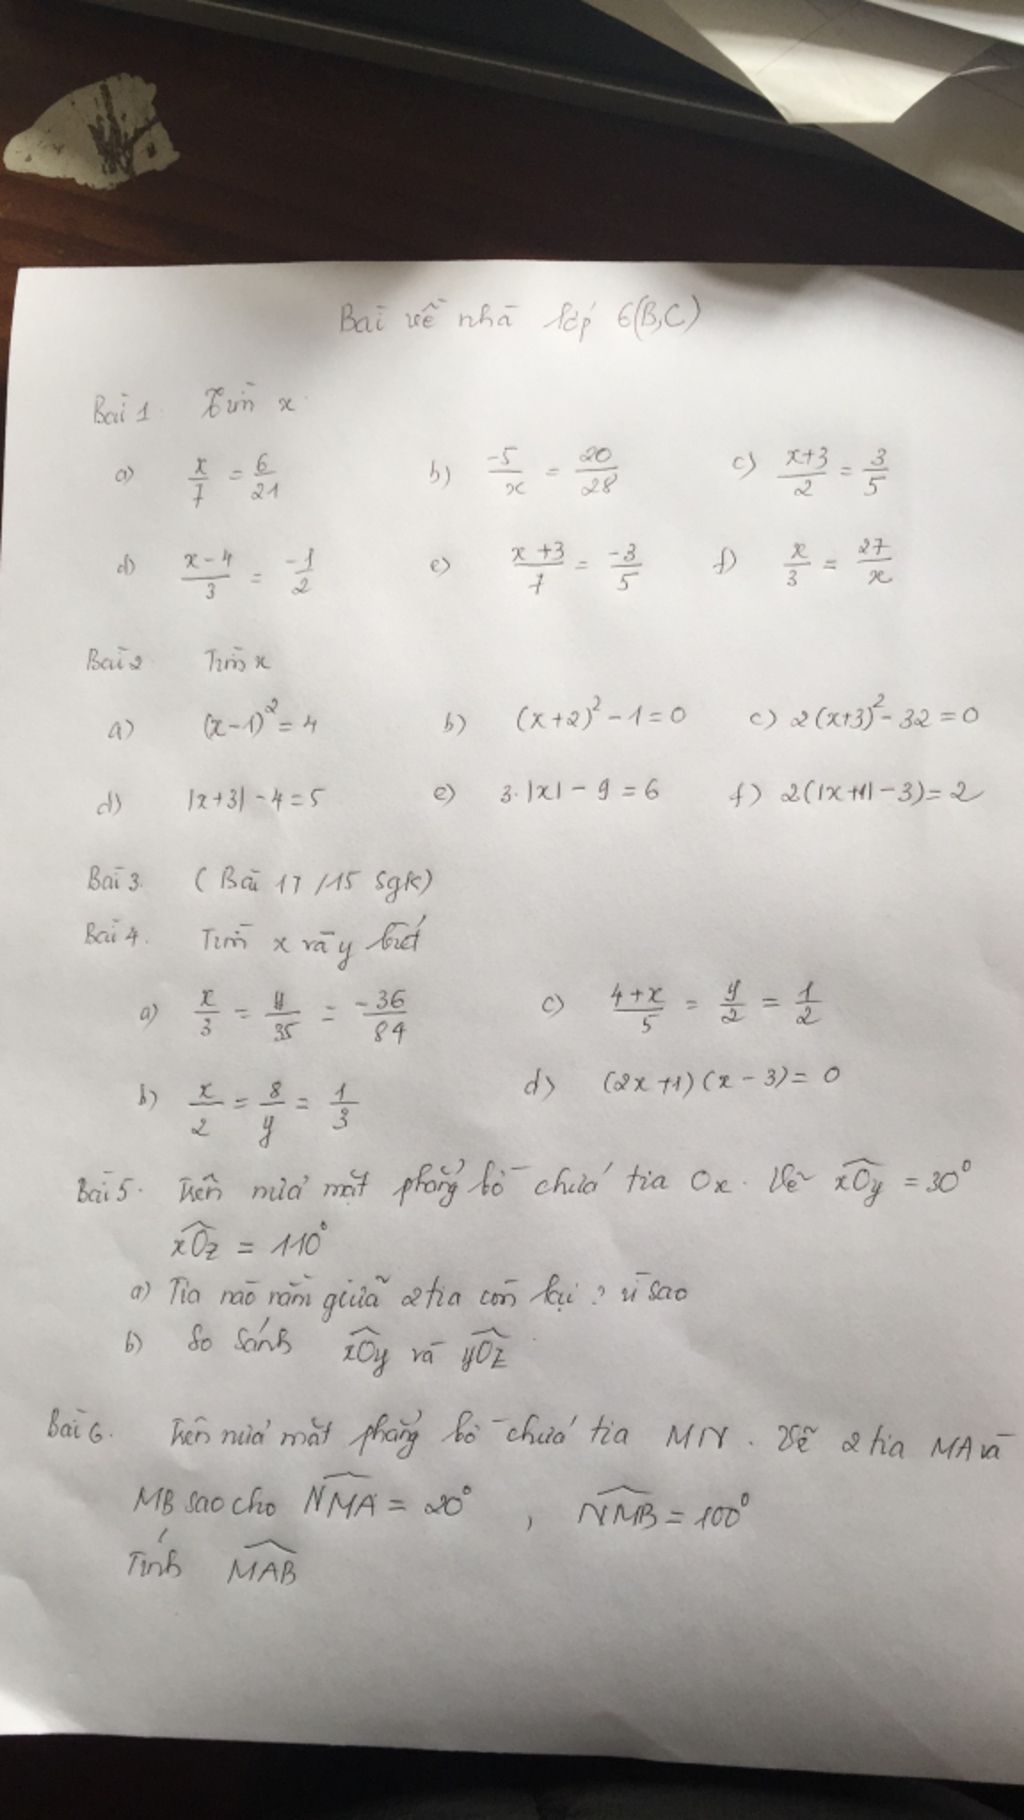 Bài về nhà lớp 6(B,C)
Bài 1. Tìm x.
a) x/7 = 6/21 b) -5/x = 20/28 c) x+3/2 = 3/5
d) x-4/3 = -1/2 e) x+3/7 = -3/5 f) x/3 = 27/x
Bài 2 Tìm x
a) (x-1)² = 4 b) (x+2)² - 1 = 0 c) 2(x+3)² - 32 = 0
d) |x+3| - 4 = 5 e) 3.|x| - 9 = 6 f) 2(|x+1| - 3) = 2
Bài 3. (Bài 17/15 sgk)
Bài 4. Tìm x và y biết
a) x/3 = y/35 = -36/84 c) 4+x/5 = y/2 = 1/2
b) x/2 = 8/y = 1/3 d) (2x+1)(x-3) = 0
Bài 5. Trên nửa mặt phẳng bờ chứa tia Ox. Vẽ xOy = 30°
xOz = 110°
a) Tia nào nằm giữa 2 tia còn lại? vì sao
b) So sánh xOy và yOz
Bài 6. Trên nửa mặt phẳng bờ chứa tia MN. Vẽ 2 tia MA và
MB sao cho NMA = 20°, NMB = 100°
Tính MAB